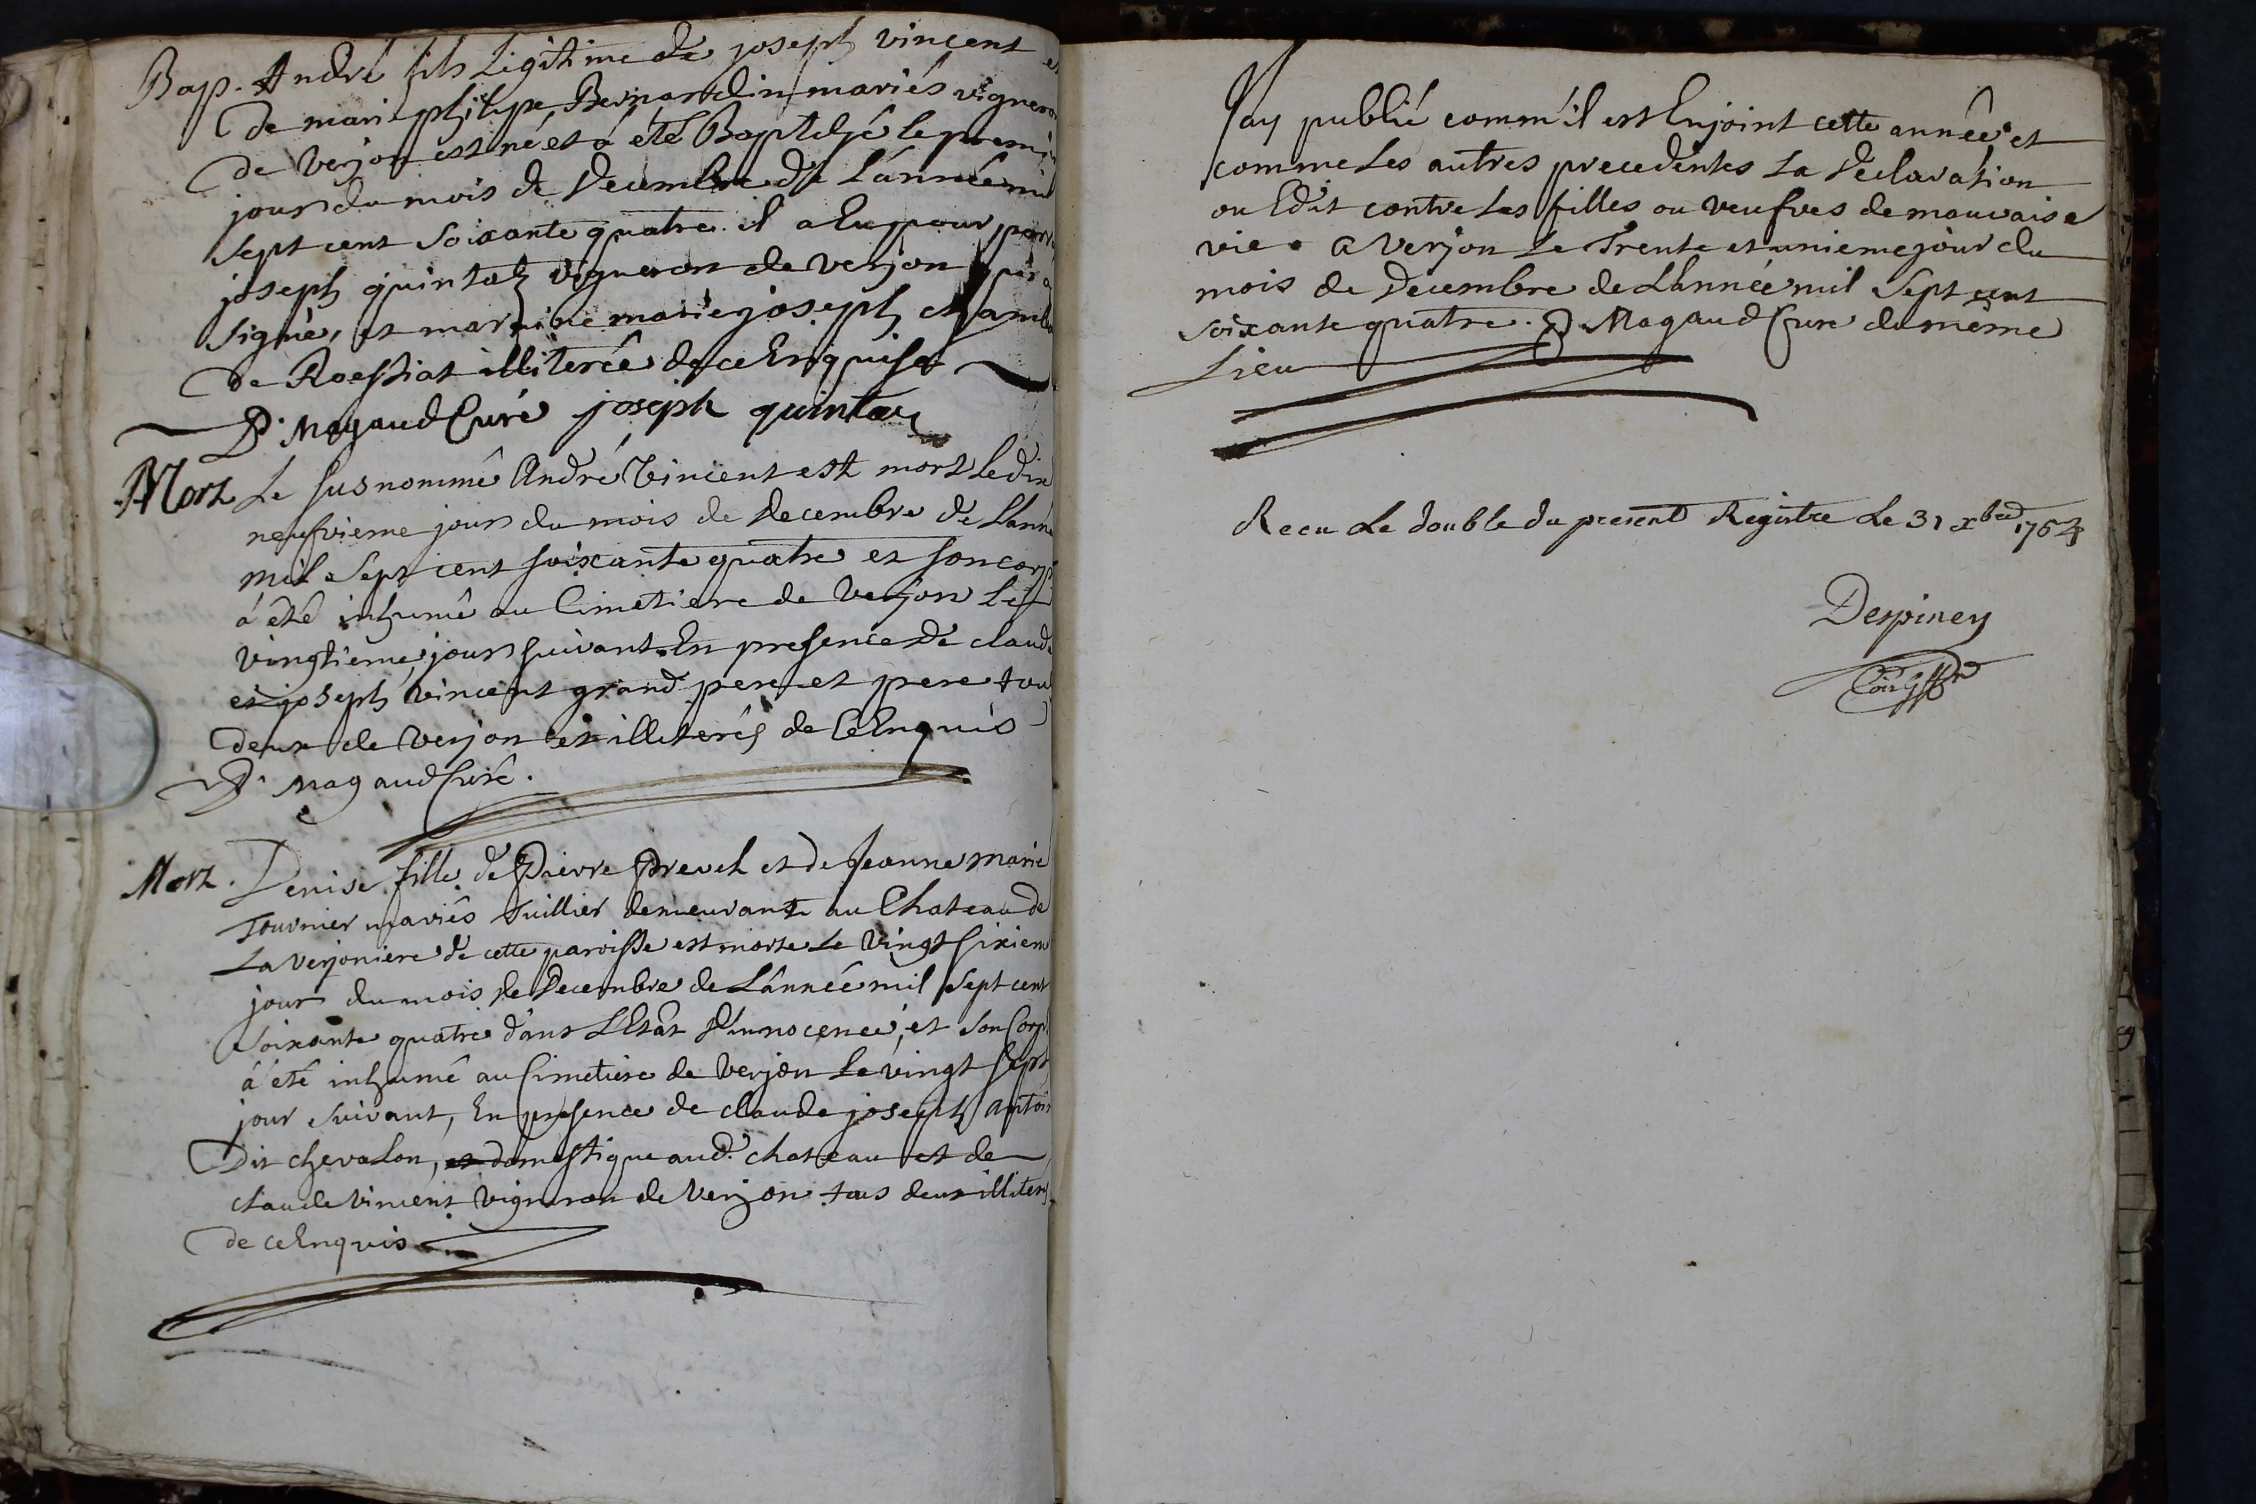 Bap. André fils Legitime de joseph vincent et
de marie philipe Bernardin mariés vigneron
de verjon est né et á été Baptisé le premie
jour du mois de Decembre de L'année mil
sept cent soixante quatre. il a Eu pour parr
joseph quintal vigneron de verjon qui a
signé, et marraine marie joseph
de Roessiat illiterée de ce Enquise
D. Magaud Curé joseph quintal
Mort Le susnommé André Vincent est mort le dix
neufvieme jour du mois de Decembre de L'anné
mil sept cent soixante quatre et son corp
á été inhumé au Cimetiere de Verjon Le
vingtieme jour suivant. En presence de claude
et joseph vincent grand pere et pere tou
deux de Verjon et illiterés de Ce Enquis
D. Magaud Curé.
Mort. Denise fille de Pierre Prevel et de Jeanne marie
Tournier mariés demeurant au Chateau de
La verjoniere de cette paroisse est morte Le vingt sixiem
jour du mois de Decembre de L'année mil sept cent
soixante quatre dans L'Etat d'innocence, et son Corp
á été inhumé au Cimetiere de verjon Le vingt sept
jour suivant, En presence de claude joseph antoin
Dit chevalon, et domestique aud. chateau et de
claude vincent vigneron de verjon tous deux illiterés
de ce Enquis
Jay publié comm'il est Enjoint cette année et
comme Les autres precedentes La Declaration
ou Edit contre Les filles ou veufves de mauvaise
vie. a Verjon Le Trente et unieme jour du
mois de Decembre de L'année mil sept cent
soixante quatre. D. Magaud Cure du même
Lieu
Recu Le double du present Registre Le 31 xbre 1764
Despiney